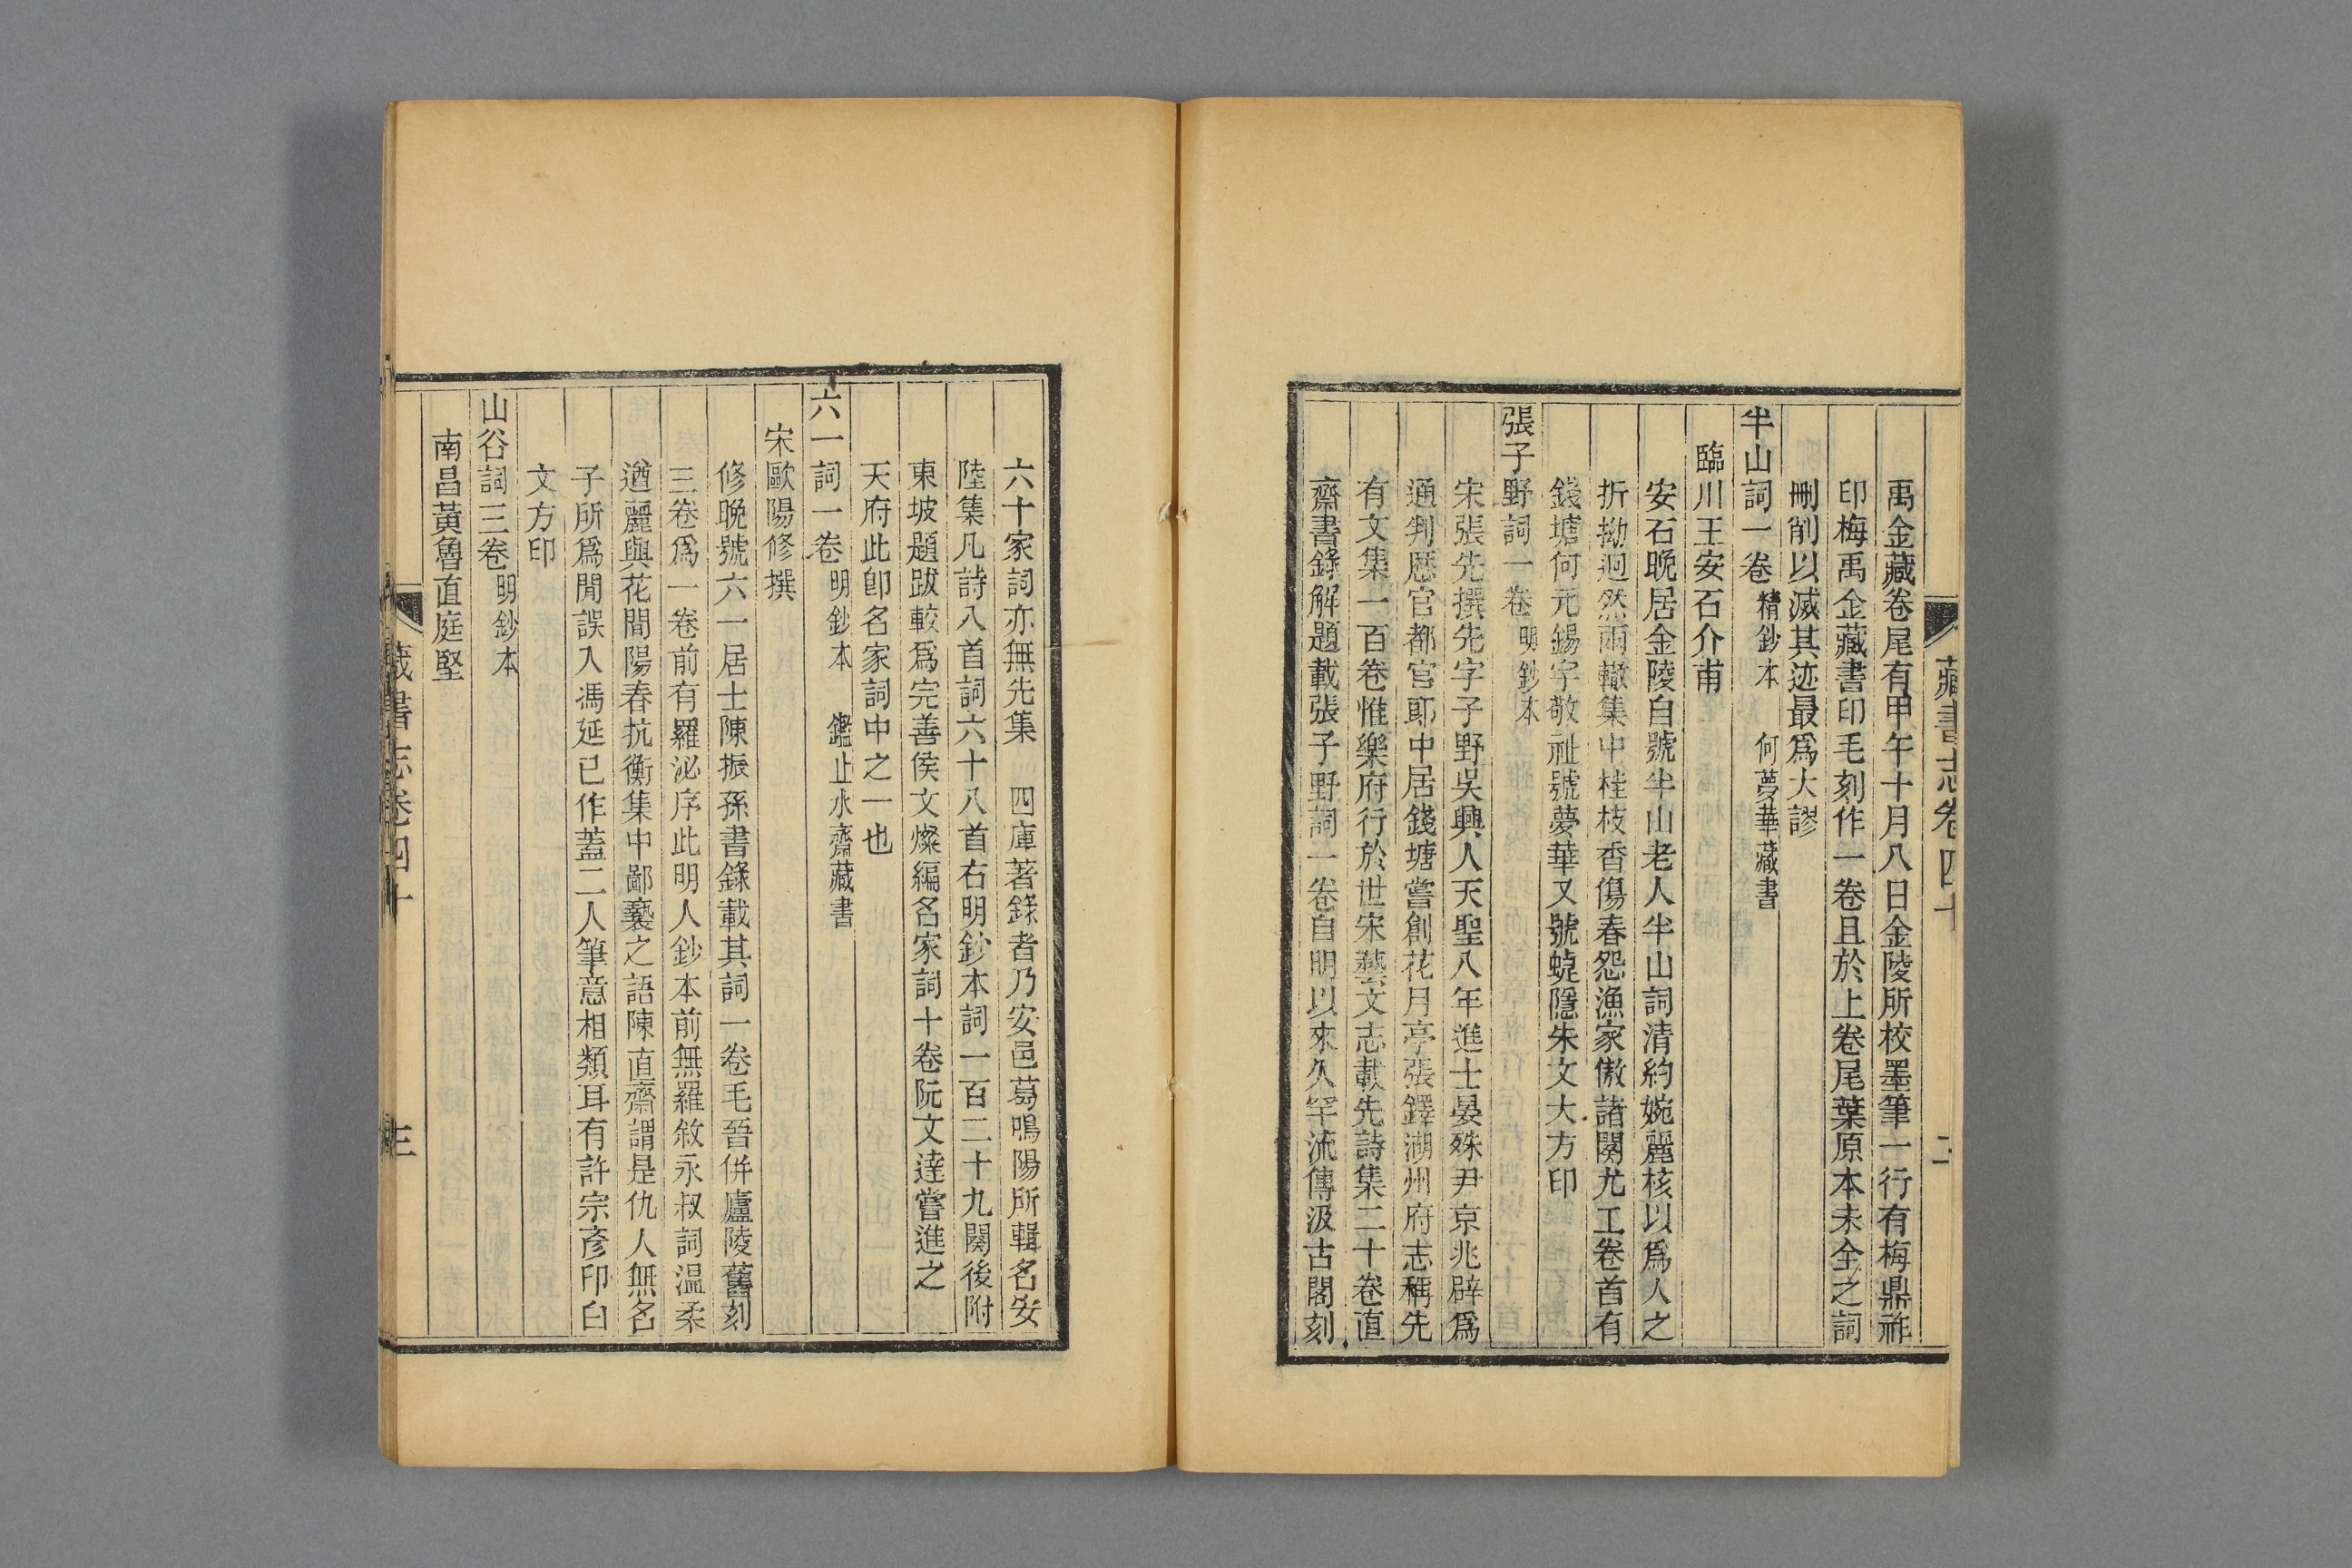 藏書志卷四十
二
禹金藏卷尾有甲午十月八日金陵所校墨筆一行有梅鼎祚
印梅禹金藏書印毛刻作一卷且於上卷尾葉原本未全之詞
刪削以滅其迹最爲大謬
半山詞一卷 精鈔本 何夢華藏書
臨川王安石介甫
安石晚居金陵自號半山老人半山詞清約婉麗核以爲人之
折拗迥然兩轍集中桂枝香傷春怨漁家傲諸闋尤工卷首有
錢塘何元錫字敬祉號夢華又號蜨隱朱文大方印
張子野詞一卷 明鈔本
宋張先撰先字子野吳興人天聖八年進士晏殊尹京兆辟爲
通判歷官都官郎中居錢塘嘗創花月亭張鐸湖州府志稱先
有文集一百卷惟樂府行於世宋藝文志載先詩集二十卷直
齋書錄解題載張子野詞一卷自明以來久罕流傳汲古閣刻
六十家詞亦無先集 四庫著錄者乃安邑葛鳴陽所輯名安
陸集凡詩八首詞六十八首右明鈔本詞一百二十九闋後附
東坡題跋較爲完善侯文燦編名家詞十卷阮文達嘗進之
天府此卽名家詞中之一也
六一詞一卷 明鈔本 鑑止水齋藏書
宋歐陽修撰
修晚號六一居士陳振孫書錄載其詞一卷毛晉併廬陵舊刻
三卷爲一卷前有羅泌序此明人鈔本前無羅敘永叔詞温柔
遒麗與花間陽春抗衡集中鄙褻之語陳直齋謂是仇人無名
子所爲閒誤入馮延已作蓋二人筆意相類耳有許宗彥印白
文方印
山谷詞三卷 明鈔本
南昌黃魯直庭堅
藏書志卷四十
三